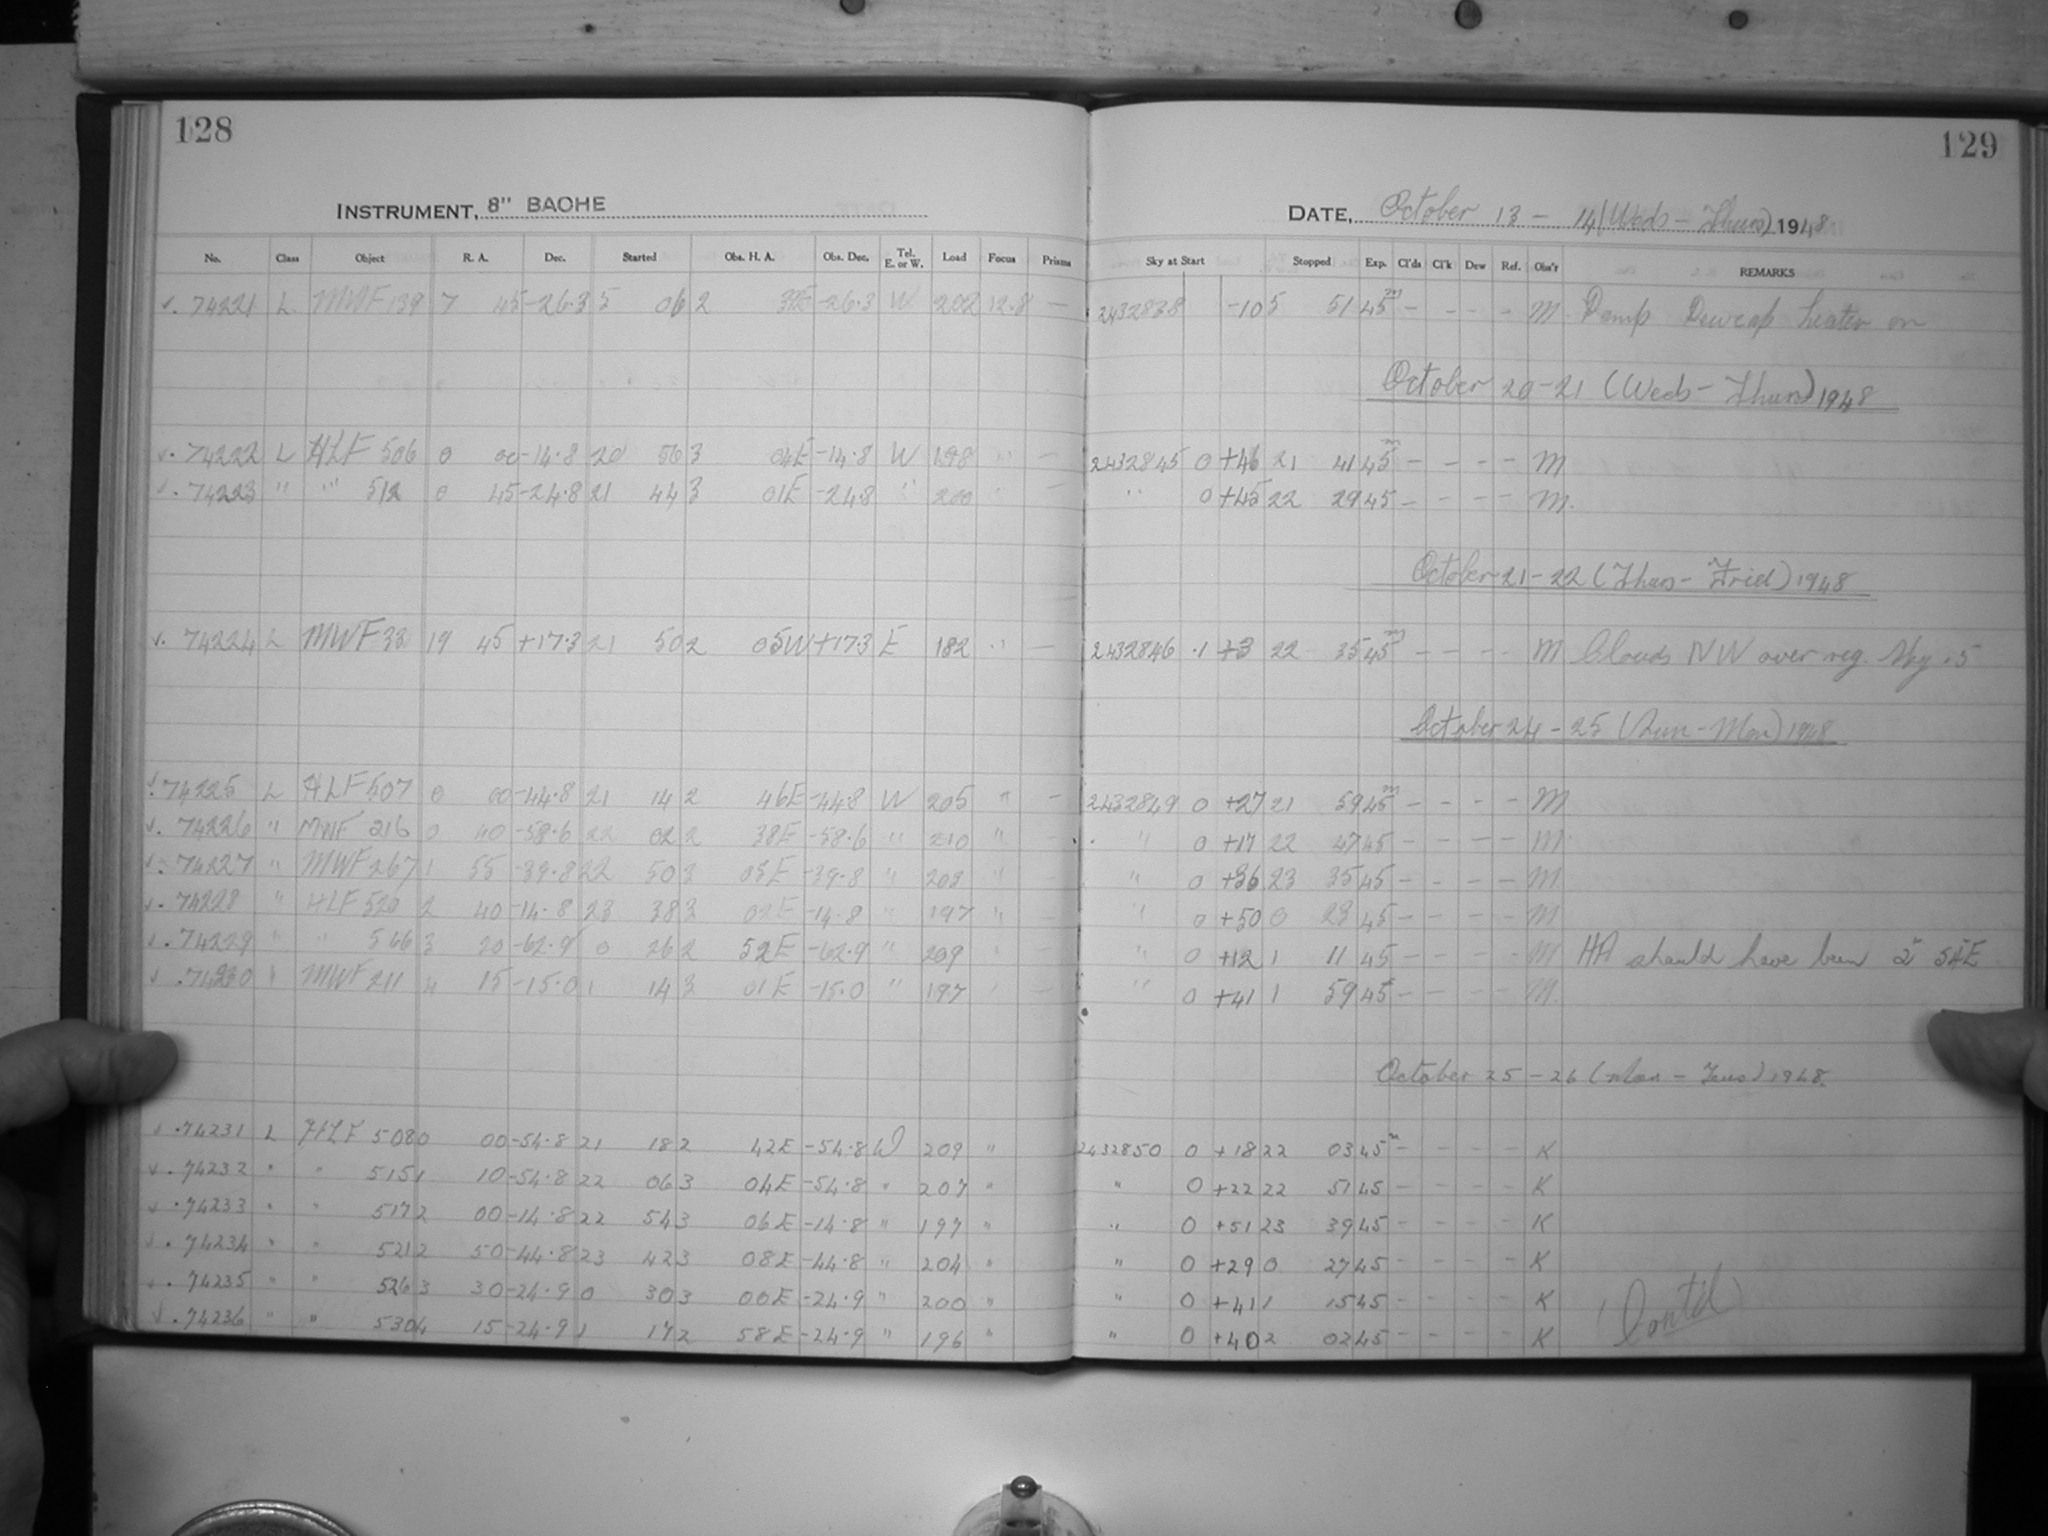 128
INSTRUMENT, 8" BACHE
No. Class Object R. A. Dec. Started Obs. H. A. Obs. Dec. Tel. E. or W. Load Focus Prisms
v. 74221 L MWF 139 7 45 -26.3 5 06 2 38E -26.3 W 202 12.8 —
v. 74222 L HLF 506 0 00 -14.8 20 56 3 04E -14.8 W 198 " —
v. 74223 " " 512 0 45 -24.8 21 44 3 01E -24.8 " 200 " —
v. 74224 L MWF 33 19 45 +17.3 21 50 2 05W +17.3 E 182 " —
v. 74225 L HLF 507 0 00 -44.8 21 14 2 46E -44.8 W 205 " —
v. 74226 " MWF 216 0 40 -58.6 22 02 2 38E -58.6 " 210 " —
v. 74227 " MWF 267 1 55 -39.8 22 50 3 05E -39.8 " 203 " —
v. 74228 " HLF 520 2 40 -14.8 23 38 3 02E -14.8 " 197 " —
v. 74229 " " 566 3 20 -62.9 0 26 2 52E -62.9 " 209 " —
v. 74230 " MWF 211 4 15 -15.0 1 14 3 01E -15.0 " 197 " —
v. 74231 L HLF 508 0 00 -54.8 21 18 2 42E -54.8 W 209 "
v. 74232 " " 515 1 10 -54.8 22 06 3 04E -54.8 " 207 "
v. 74233 " " 517 2 00 -14.8 22 54 3 06E -14.8 " 197 "
v. 74234 " " 521 2 50 -44.8 23 42 3 08E -44.8 " 204 "
v. 74235 " " 526 3 30 -24.9 0 30 3 00E -24.9 " 200 "
v. 74236 " " 530 4 15 -24.9 1 17 2 58E -24.9 " 196 "
129
DATE, October 13 - 14 (Weds - Thurs) 1948
Sky at Start Stopped Exp. Cl'ds Cl'k Dew Ref. Obs'r REMARKS
2432838 -10 5 51 45m — — — — M. Damp Dewcap heater on
October 20-21 (Weds - Thurs) 1948
2432845 0 +46 21 41 45m — — — — M
" 0 +45 22 29 45 — — — — M.
October 21-22 (Thurs - Frid) 1948
2432846 .1 +3 22 35 45m — — — — M Clouds NW over reg. .5
October 24 - 25 (Sun - Mon) 1948
2432849 0 +27 21 59 45m — — — — M
" 0 +17 22 47 45 — — — — M
" 0 +36 23 35 45 — — — — M
" 0 +50 0 23 45 — — — — M
" 0 +12 1 11 45 — — — — M HA should have been 2 54E
" 0 +41 1 59 45 — — — — M
October 25 - 26 (Mon - Tues) 1948.
2432850 0 +18 22 03 45m — — — — K
" 0 +22 22 51 45 — — — — K
" 0 +51 23 39 45 — — — — K
" 0 +29 0 27 45 — — — — K
" 0 +41 1 15 45 — — — — K
" 0 +40 2 02 45 — — — — K
(Cont'd)